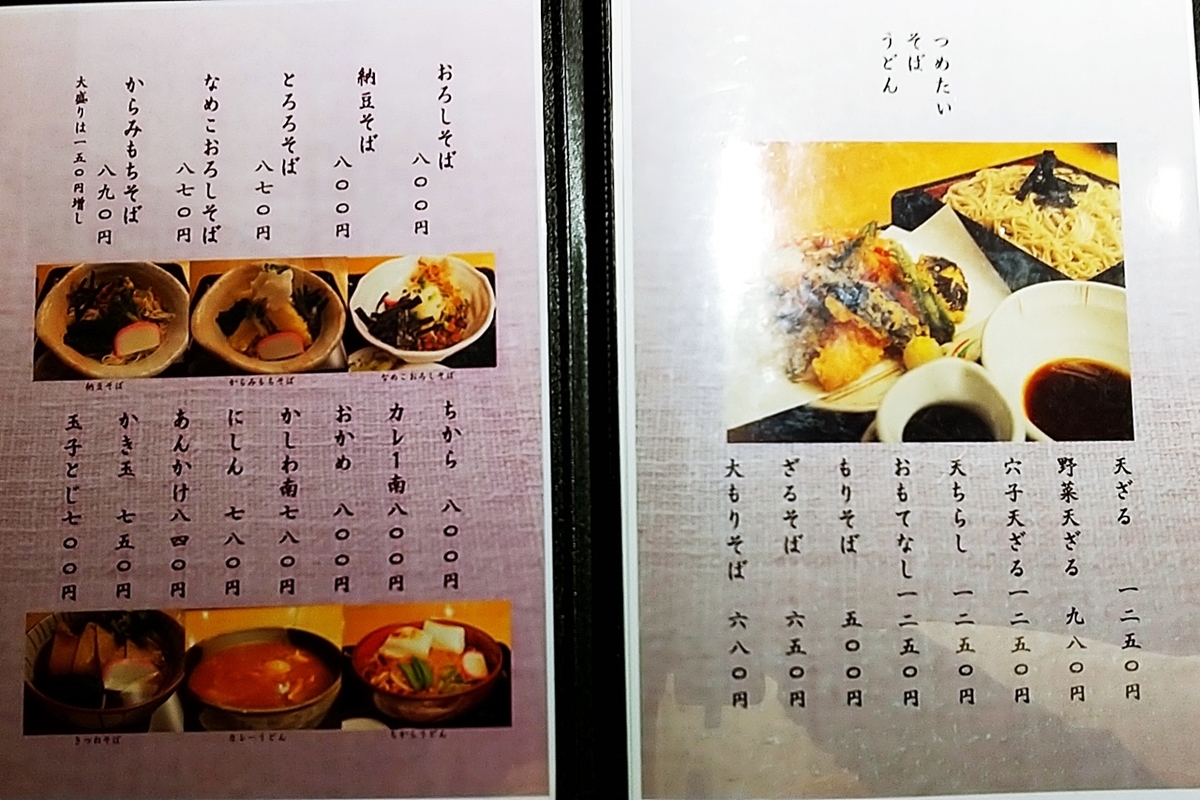 つめたい
そば
うどん
天ざる 一二五〇円
野菜天ざる 九八〇円
穴子天ざる 一二五〇円
天ちらし 一二五〇円
おもてなし 一二五〇円
もりそば 五〇〇円
ざるそば 六五〇円
大もりそば 六八〇円
おろしそば 八〇〇円
納豆そば 八〇〇円
とろろそば 八七〇円
なめこおろしそば 八七〇円
からみもちそば 八九〇円
大盛りは一五〇円増し
納豆そば
からみもちそば
なめこおろしそば
ちから 八〇〇円
カレー南 八〇〇円
おかめ 八〇〇円
かしわ南 七八〇円
にしん 七八〇円
あんかけ 八四〇円
かき玉 七五〇円
玉子とじ 七〇〇円
きつねそば
カレーうどん
ちからうどん